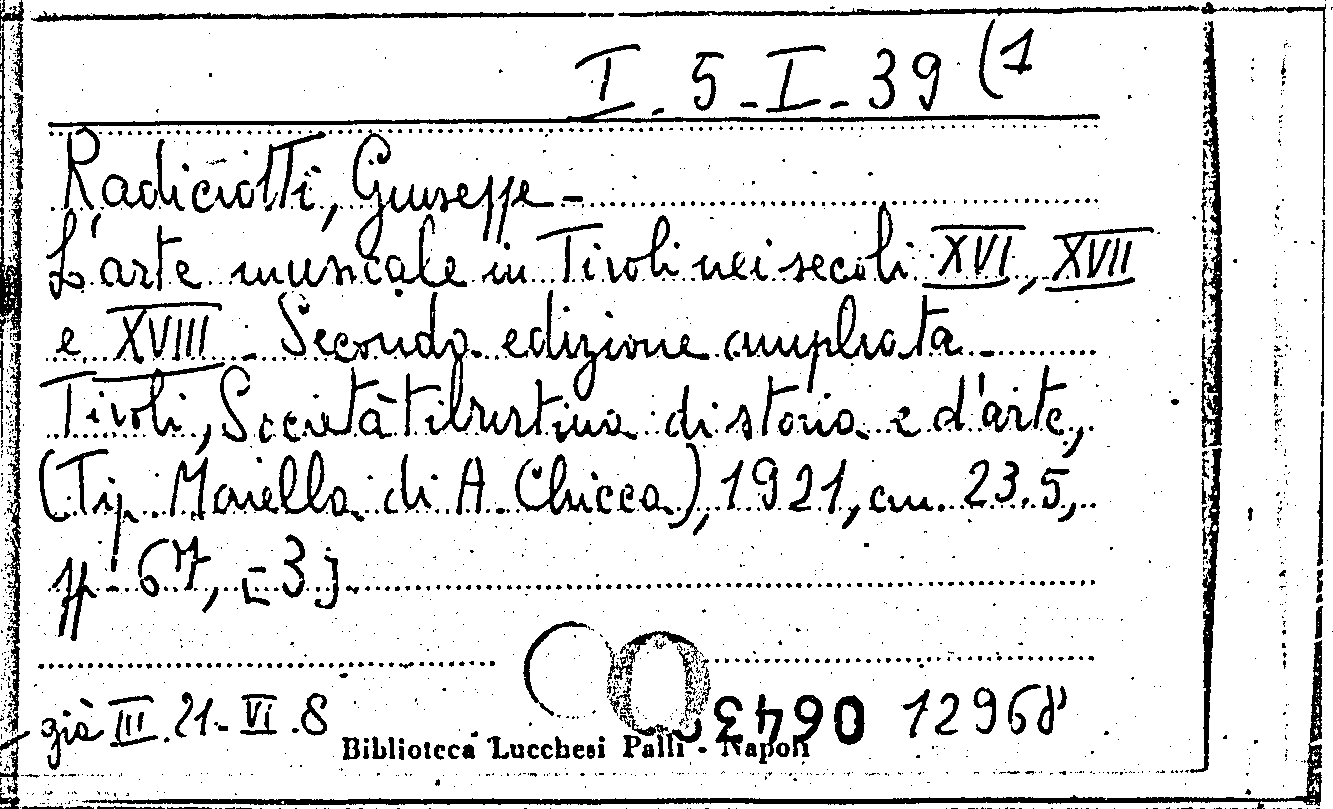 I. 5 - I - 39 (1
Radiciotti, Giuseppe -
L'arte musicale in Tivoli nei secoli XVI, XVII
e XVIII - Seconda edizione ampliata -
Tivoli, Società tiburtina di storia e d'arte,
(Tip. Maiella di A. Chicca), 1921, cm. 23.5,
pp. 67, [3].
già III. 21 - VI. 8
12968
Biblioteca Lucchesi Palli - Napoli